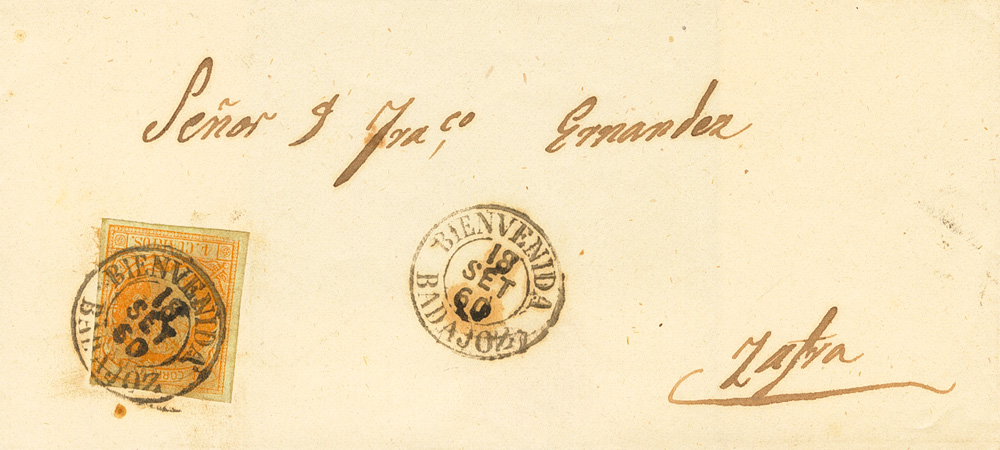 Señor D Fra,co Ernandez
BIENVENIDA
18
SET
60
BADAJOZ
4 CUARTOS
BIENVENIDA
18
SET
60
BADAJOZ
CORREOS
Zafra